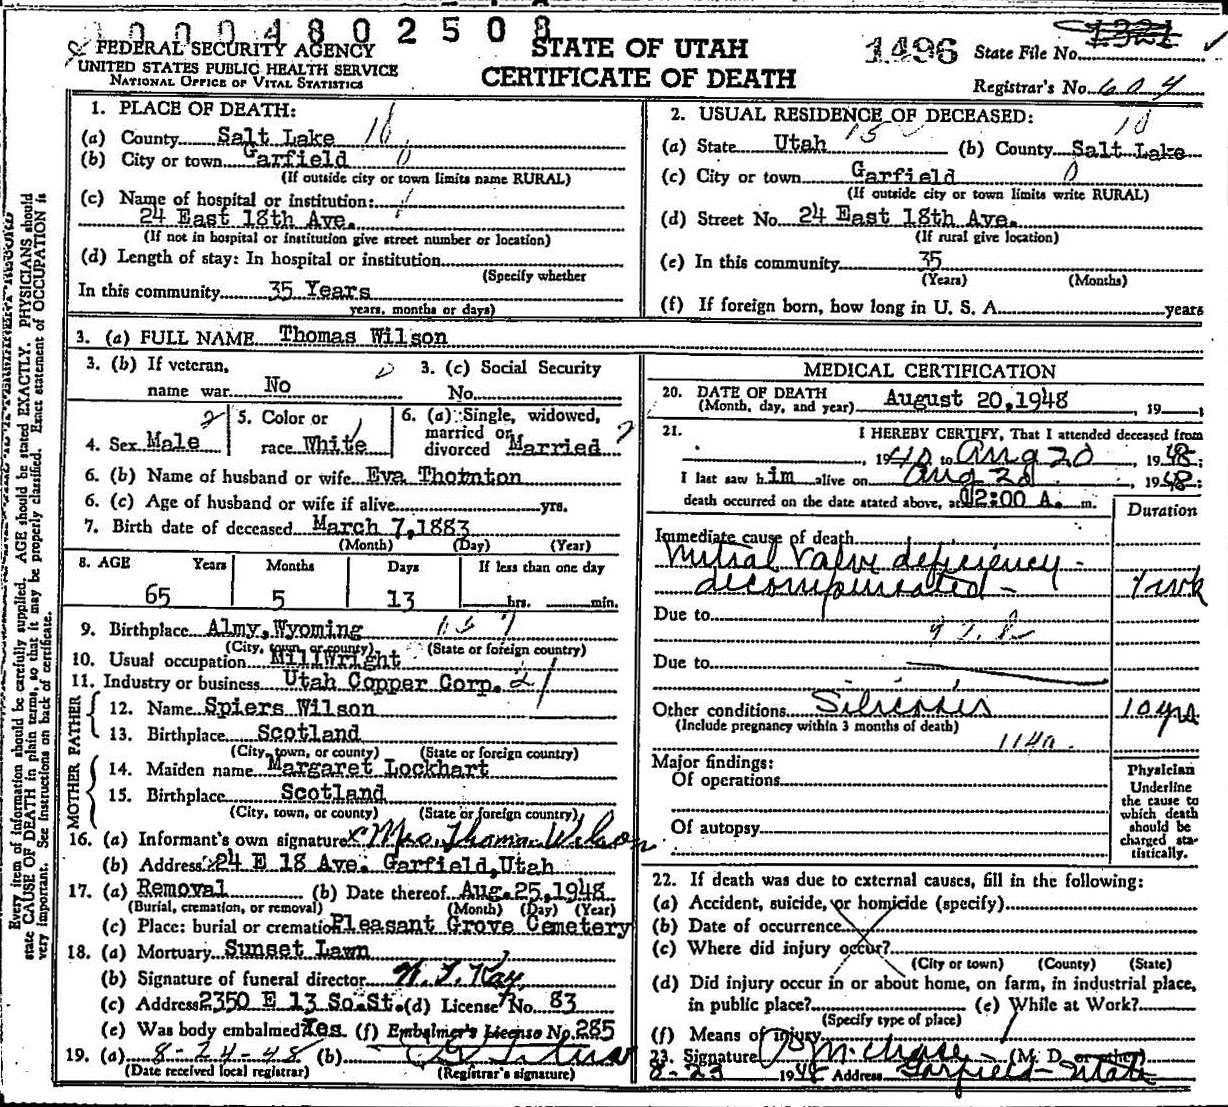 1 0 0 0 4 8 0 2 5 0 8
FEDERAL SECURITY AGENCY
UNITED STATES PUBLIC HEALTH SERVICE
NATIONAL OFFICE OF VITAL STATISTICS
STATE OF UTAH
CERTIFICATE OF DEATH
1496 State File No. 1321
Registrar's No. 604
Every item of information should be carefully supplied. AGE should be stated EXACTLY. PHYSICIANS should
state CAUSE OF DEATH in plain terms, so that it may be properly classified. Exact statement of OCCUPATION is
very important. See instructions on back of certificate.
1. PLACE OF DEATH:
(a) County Salt Lake 18
(b) City or town Garfield 0
(If outside city or town limits name RURAL)
(c) Name of hospital or institution:
24 East 18th Ave.
(If not in hospital or institution give street number or location)
(d) Length of stay: In hospital or institution
(Specify whether
In this community 35 Years
years, months or days)
2. USUAL RESIDENCE OF DECEASED:
(a) State Utah 15 (b) County Salt Lake 18
(c) City or town Garfield 0
(If outside city or town limits write RURAL)
(d) Street No. 24 East 18th Ave.
(If rural give location)
(e) In this community 35
(Years) (Months)
(f) If foreign born, how long in U. S. A. years
3. (a) FULL NAME Thomas Wilson
3. (b) If veteran,
name war No
3. (c) Social Security
No.
4. Sex Male 2
5. Color or
race White 1
6. (a) Single, widowed,
married or
divorced Married 2
6. (b) Name of husband or wife Eva Thornton
6. (c) Age of husband or wife if alive yrs.
7. Birth date of deceased March 7,1883
(Month) (Day) (Year)
8. AGE Years Months Days If less than one day
65 5 13 hrs. min.
9. Birthplace Almy,Wyoming
(City, town, or county) (State or foreign country)
10. Usual occupation MillWright
11. Industry or business Utah Copper Corp.
FATHER
12. Name Spiers Wilson
13. Birthplace Scotland
(City, town, or county) (State or foreign country)
MOTHER
14. Maiden name Margaret Lockhart
15. Birthplace Scotland
(City, town, or county) (State or foreign country)
16. (a) Informant's own signature x Mrs. Thomas Wilson
(b) Address 24 E 18 Ave. Garfield,Utah
17. (a) Removal (b) Date thereof Aug.25,1948
(Burial, cremation, or removal) (Month) (Day) (Year)
(c) Place: burial or cremation Pleasant Grove Cemetery
18. (a) Mortuary Sunset Lawn
(b) Signature of funeral director
(c) Address 2350 E 13 So.St. (d) License No. 83
(e) Was body embalmed? Yes (f) Embalmer's License No. 285
19. (a) 8-24-48 (b)
(Date received local registrar) (Registrar's signature)
MEDICAL CERTIFICATION
20. DATE OF DEATH
(Month, day, and year) August 20,1948 , 19
21. I HEREBY CERTIFY, That I attended deceased from
, 1940 to Aug 20 , 1948;
I last saw him alive on Aug 20 , 1948;
death occurred on the date stated above, at 12:00 A. m.
Duration
Immediate cause of death
Mitral Valve deficiency -
decompensated - 1 wk
Due to
Due to
Other conditions Silicosis 10 yrs
(Include pregnancy within 3 months of death)
114a
Major findings:
Of operations
Of autopsy
Physician
Underline
the cause to
which death
should be
charged sta-
tistically.
22. If death was due to external causes, fill in the following:
(a) Accident, suicide, or homicide (specify)
(b) Date of occurrence
(c) Where did injury occur?
(City or town) (County) (State)
(d) Did injury occur in or about home, on farm, in industrial place,
in public place? (e) While at Work?
(Specify type of place)
(f) Means of injury
23. Signature (M. D. or other)
8-23 1948 Address Garfield - Utah